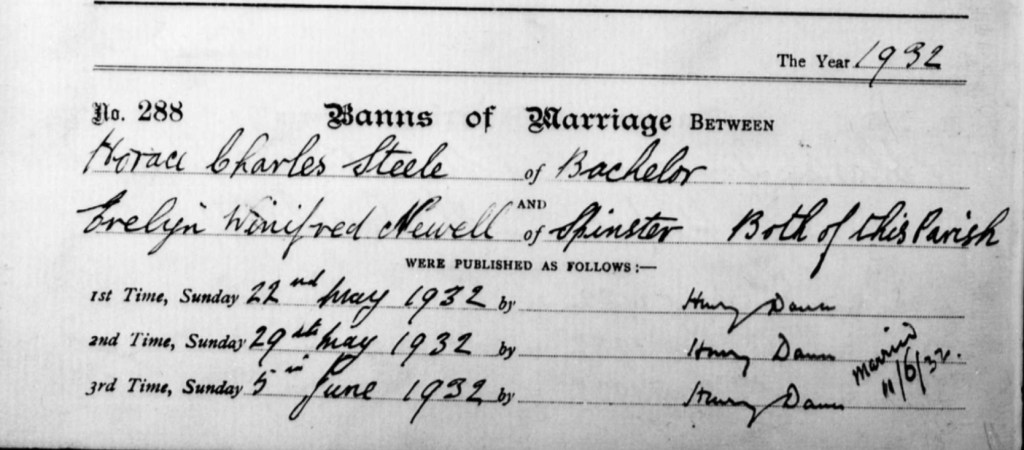 The Year 1932
No. 288 Banns of Marriage BETWEEN
Horace Charles Steele of Bachelor
AND
Evelyn Winifred Newell of Spinster Both of this Parish
WERE PUBLISHED AS FOLLOWS:—
1st Time, Sunday 22nd May 1932 by Henry Dann
2nd Time, Sunday 29th May 1932 by Henry Dann
3rd Time, Sunday 5th June 1932 by Henry Dann
Married
11/6/32.